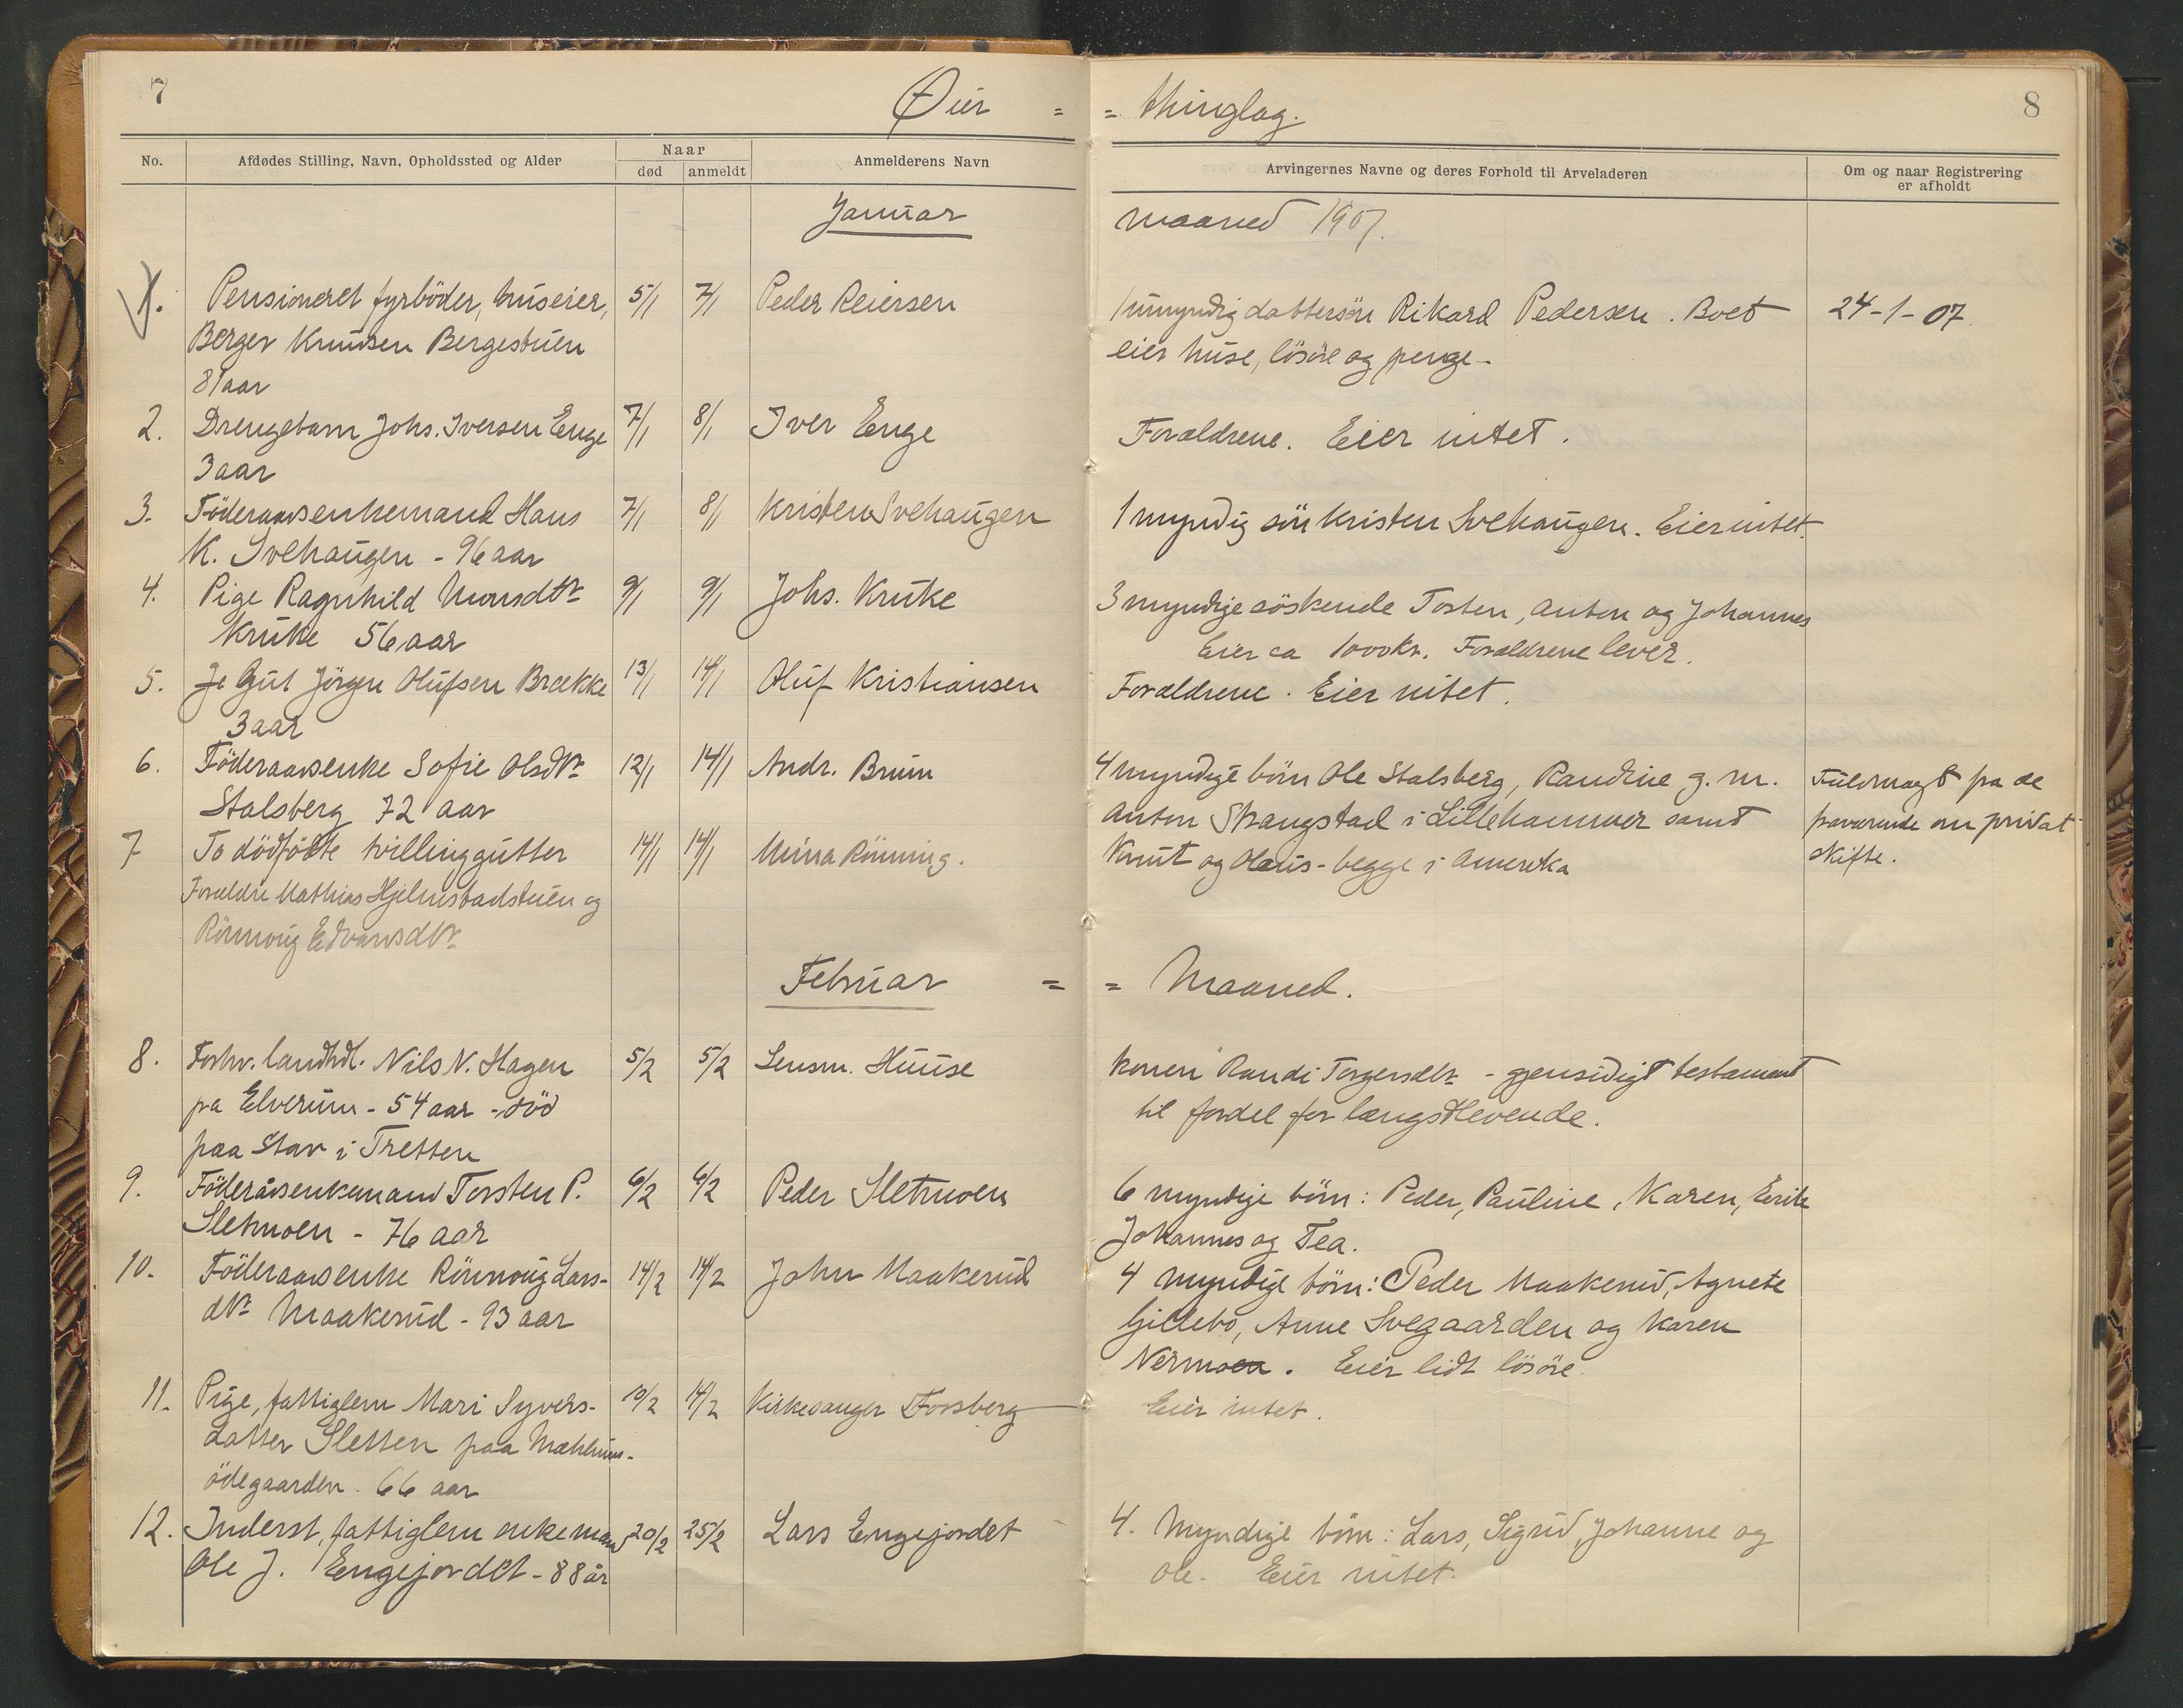 7
8
Øier = = thinglag.
No.
Afdødes Stilling, Navn, Opholdssted og Alder
Naar
død
anmeldt
Anmelderens Navn
Arvingernes Navne og deres Forhold til Arveladeren
Om og naar Registrering
er afholdt
Januar maaned 1907.
1. Pensioneret fyrböder, huseier, 5/1 7/1 Peder Reiersen
Berger Knudsen Bergestuen
81 aar
1 umyndig dattersön Rikard Pedersen. Boet 24-1-07.
eier huse, lösöre og penge.
2. Drengebarn Johs. Iversen Enge 7/1 8/1 Iver Enge
3 aar
Forældrene. Eier intet.
3. Föderaadsenkemand Hans 7/1 8/1 Kristen Svehaugen
K. Svehaugen - 96 aar
1 myndig sön Kristen Svehaugen. Eier intet.
4. Pige Ragnhild Monsdtr 9/1 9/1 Johs. Kruke
Kruke 56 aar
3 myndige söskende Tosten, Anton og Johannes
Eier ca 1000 kr. Forældrene lever.
5. Gut Jörgen Olufsen Brække 13/1 14/1 Oluf Kristiansen
3 aar
Forældrene. Eier intet.
6. Föderaadsenke Sofie Olsdtr 12/1 14/1 Andr. Bruun
Stalsberg 72 aar
4 myndige börn Ole Stalsberg, Randine g. m.
Anton Skangstad i Lillehammer samt
Knut og Olaus - begge i Amerika
Fuldmagt fra de
fraværende om privat
skifte.
7 To dödfödte tvillinggutter 14/1 14/1 Mina Rönning.
Forældre Mathias Hjelmstadstuen og
Rönnoug Edvardsdtr
Februar = = Maaned.
8. Forhv. landhdl. Nils N. Hagen 5/2 5/2 Lensm. Huuse
pa Elverum - 54 aar - död
paa Stav i Tretten
Konen Randi Torgersdtr - gjensidigt testament
til fordel for længstlevende.
9. Föderådsenkemand Torsten P. 6/2 6/2 Peder Sletmoen
Sletmoen - 76 aar
6 myndige börn: Peder, Pauline, Karen, Eirik
Johannes og Tea.
10. Föderaadsenke Rönnoug Lars- 14/2 14/2 John Maakerud
dtr Maakerud - 93 aar
4 myndige börn: Peder Maakerud, Agnete
Gillebo, Anne Svegaarden og Karen
Nermoen. Eier lidt lösöre.
11. Pige, fattiglem Mari Syvers- 10/2 14/2 Kirkesanger Forsberg
datter Sletten paa Mæhlum-
ödegaarden. 66 aar
Eier intet.
12. Inderst, fattiglem enkemand 20/2 25/2 Lars Engejordet
Ole J. Engejordet - 88 år
4. Myndige börn: Lars, Sigrid, Johanne og
Ole. Eier intet.